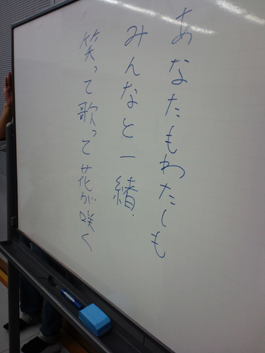 あなたもわたしも
みんなと一緒
笑って歌って花が咲く